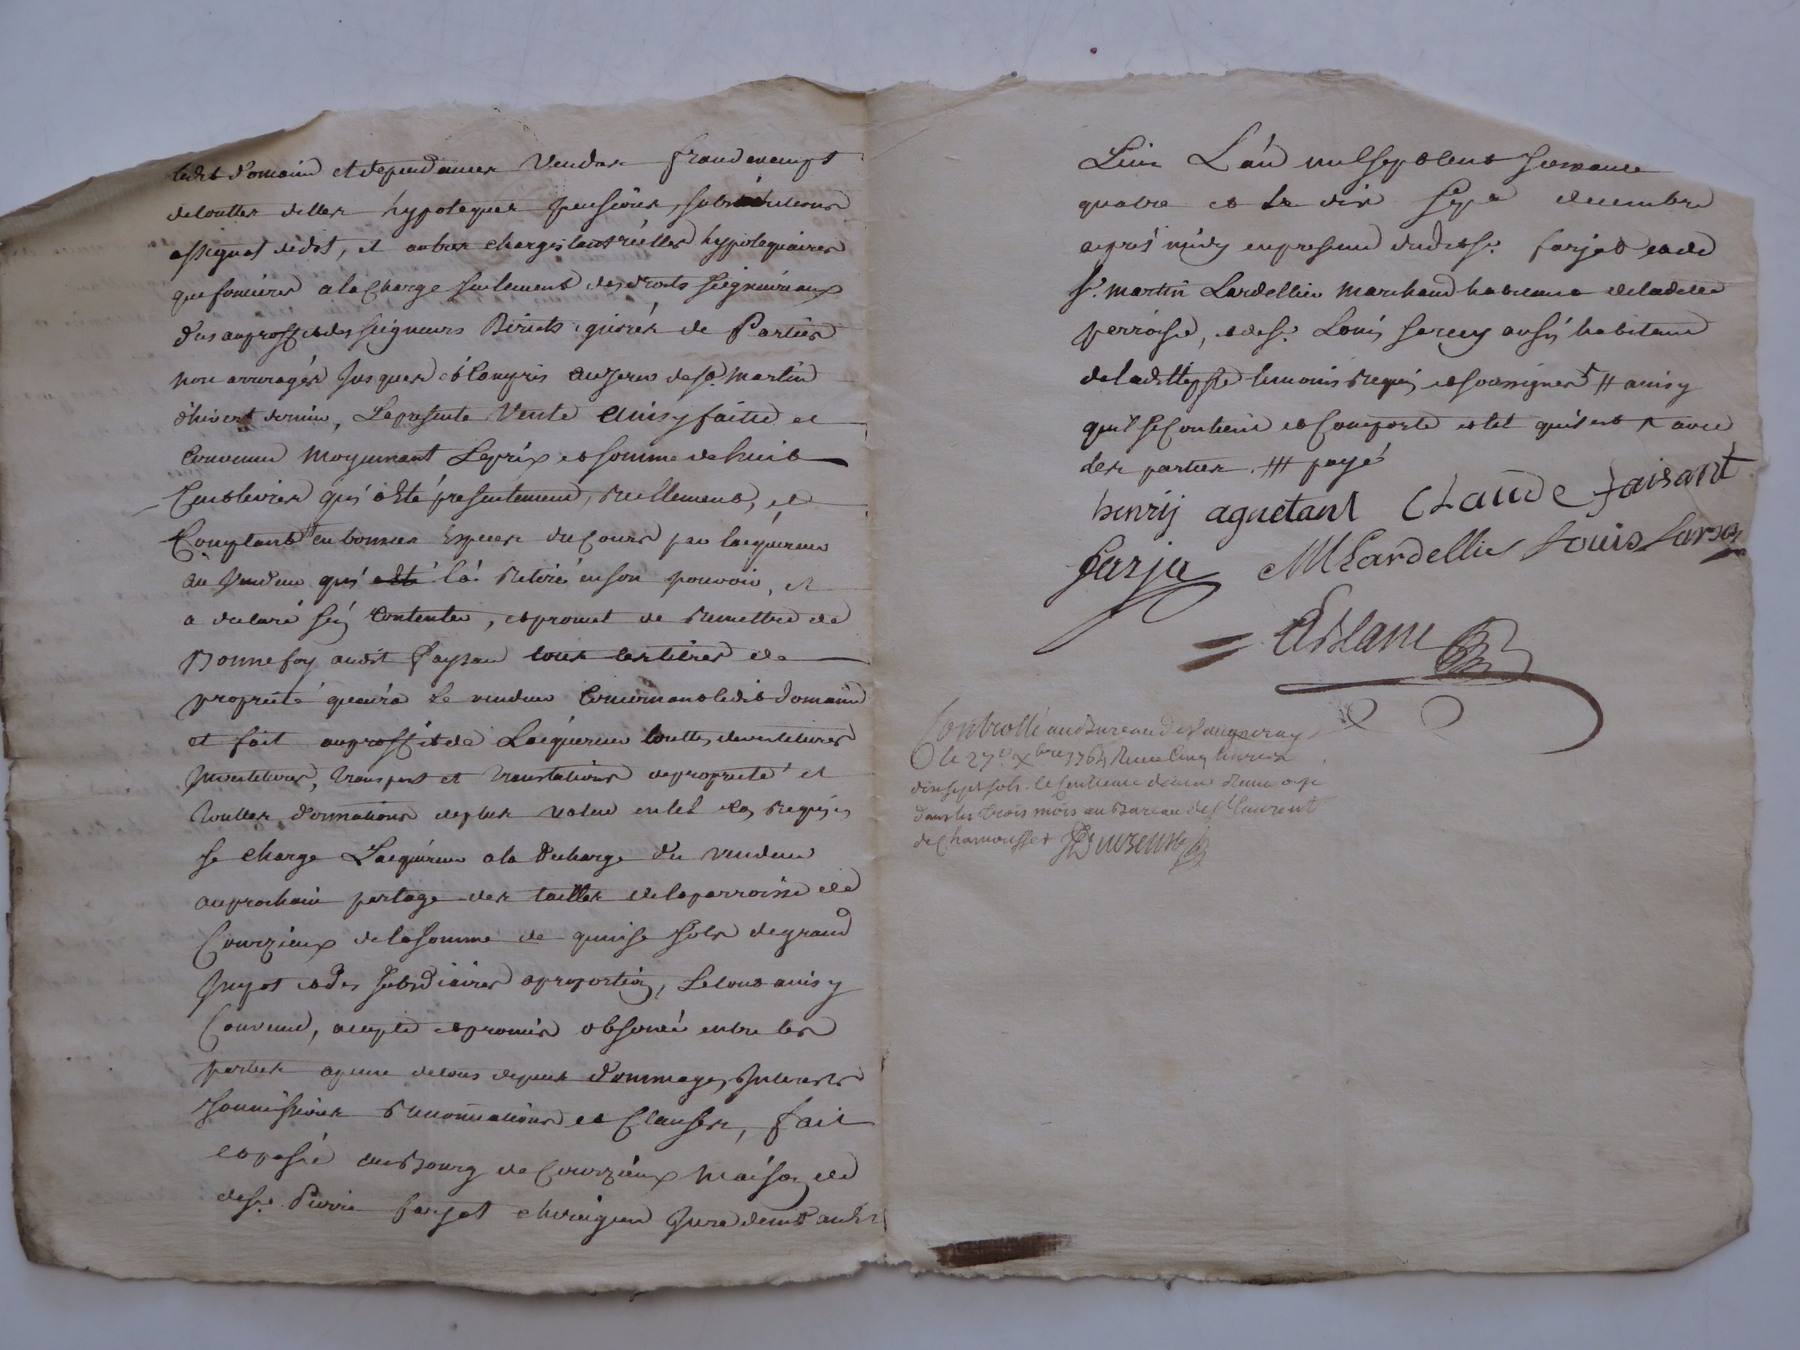 ledit domaine et dependances vendus franc exempt
de touttes dettes hypoteques pensions, substitutions
assignat de dot, et autres charges tant réelles hypotequaires
que foncières a la charge seulement des droits seigneuriaux
dus au proffit des seigneurs directs
non arreragés jusques et compris de st martin
d'hivert dernier, La presente vente ainsy faitte et
convenue moyennant Le prix et somme de huit
Cent livres qui a été presentement, reellement, et
Comptant en bonnes Especes du Cours par lacquereur
au vendeur qui la retiré en son pouvoir, et
a declaré s'en contenter, et promet de remettre de
Bonne foy audit tous les titres de
proprieté qu'aura Le vendeur Concernant ledit domaine
et fait au proffit de Lacquereur touttes, devestitures
Investitures, transport et translations de proprieté et
touttes donnations de plus value en tel cas requises
se charge Lacquereur a la decharge du vendeur
au prochain partage des tailles de la parroisse de
Courzieux de la somme de quinse sols de grand
et des subsidiaires a proportion, Le tout ainsy
Convenu, accepté et promis observer entre les
parties a peine de tous depens dommages, Interests
soumissions renonciations et Clauses, fait
et passé au Bourg de Courzieux maison de
de sr. Pierre farjat chirurgien juré demt audit
Lieu L'an mil sept cent soixante
quatre et Le dix sept decembre
après midy en presence dudit sr. farjat et de
sr. martin Lardellier marchand habitant de ladite
perroisse, et de sr. Louis sarcey aussy habitant
de la ditte psse temoins requis et soussignés # ainsy
qu'il se Contient et Comporte et tel qu'il est avec
des parties. ### payé
henry aguetant Claude faisant
farja M Lardellier Louis Sarsay
Controllé au Bureau de Vaugneray
le 27e. Xbre 1764 Reçu Cinq livres
dix sept sols. le Centieme denier
dans les trois mois au Bureau de st Laurent
de Chamousset